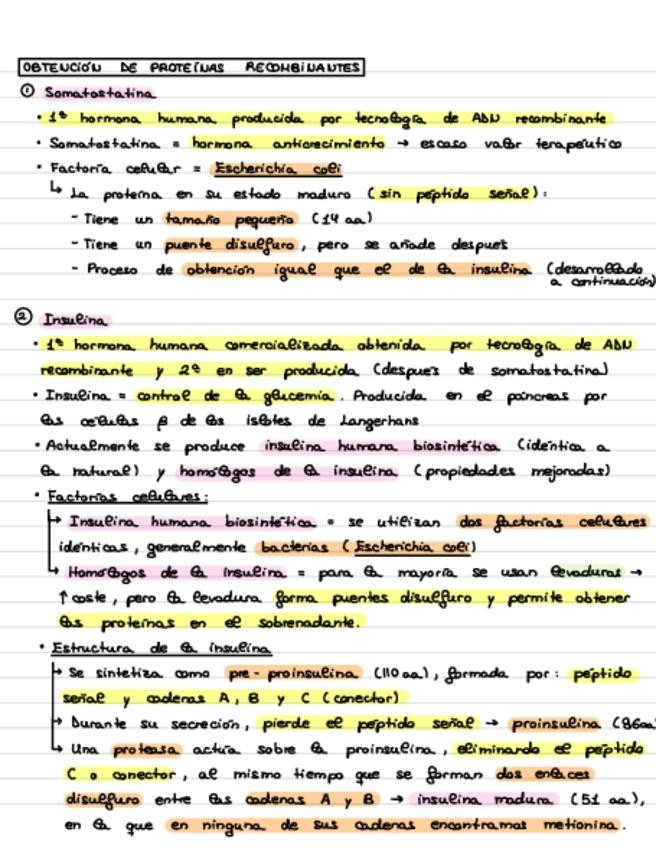 OBTENCIÓN DE PROTEÍNAS RECOMBINANTES
① Somatostatina
• 1ª hormona humana producida por tecnología de ADN recombinante
• Somatostatina = hormona anticrecimiento → escaso valor terapéutico
• Factoría celular = Escherichia coli
↳ La proteína en su estado maduro (sin péptido señal):
- Tiene un tamaño pequeño (14 aa)
- Tiene un puente disulfuro, pero se añade después
- Proceso de obtención igual que el de la insulina (desarrollado
a continuación)
② Insulina
• 1ª hormona humana comercializada obtenida por tecnología de ADN
recombinante y 2ª en ser producida (después de somatostatina)
• Insulina = control de la glucemia. Producida en el páncreas por
las células β de los islotes de Langerhans
• Actualmente se produce insulina humana biosintética (idéntica a
la natural) y homólogos de la insulina (propiedades mejoradas)
• Factorías celulares:
↳ Insulina humana biosintética = se utilizan dos factorías celulares
idénticas, generalmente bacterias (Escherichia coli)
↳ Homólogos de la insulina = para la mayoría se usan levaduras →
↑ coste, pero la levadura forma puentes disulfuro y permite obtener
las proteínas en el sobrenadante.
• Estructura de la insulina
↳ Se sintetiza como pre-proinsulina (110 aa), formada por: péptido
señal y cadenas A, B y C (conector)
↳ Durante su secreción, pierde el péptido señal → proinsulina (86aa)
↳ Una proteasa actúa sobre la proinsulina, eliminando el péptido
C o conector, al mismo tiempo que se forman dos enlaces
disulfuro entre las cadenas A y B → insulina madura (51 aa),
en la que en ninguna de sus cadenas encontramos metionina.